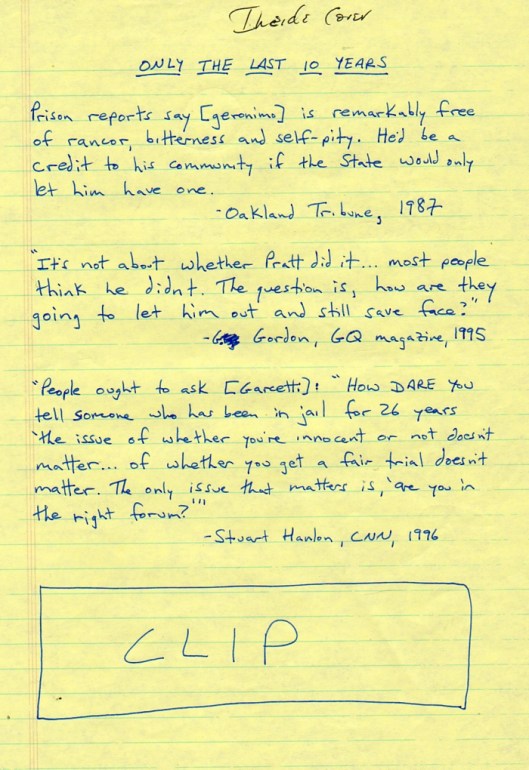 Inside Cover
ONLY THE LAST 10 YEARS
Prison reports say [geronimo] is remarkably free
of rancor, bitterness and self-pity. He'd be a
credit to his community if the State would only
let him have one.
-Oakland Tribune, 1987
"It's not about whether Pratt did it... most people
think he didn't. The question is, how are they
going to let him out and still save face?"
- Gordon, GQ magazine, 1995
"People ought to ask [Garcetti]: "HOW DARE YOU
tell someone who has been in jail for 26 years
'the issue of whether you're innocent or not doesn't
matter... of whether you get a fair trial doesn't
matter. The only issue that matters is, 'are you in
the right forum?'"'
-Stuart Hanlon, CNN, 1996
CLIP